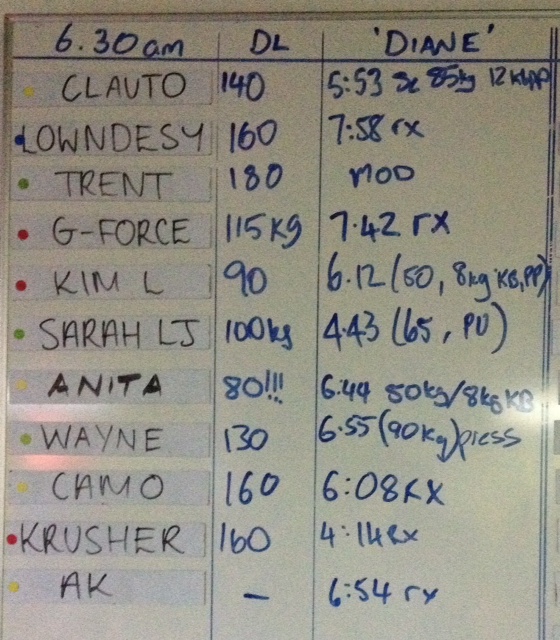 6.30am DL 'DIANE'
CLAUTO 140 5:53 sc 85kg 12KBPP
LOWNDESY 160 7:58 rx
TRENT 180 MOD
G-FORCE 115kg 7.42 rx
KIM L 90 6.12 (50, 8kg KB, PP)
SARAH LJ 100kg 4.43 (65, PU)
ANITA 80!!! 6.44 50kg/8kg KB
WAYNE 130 6.55 (90kg) press
CAMO 160 6:08 RX
KRUSHER 160 4:14 Rx
AK — 6:54 rx